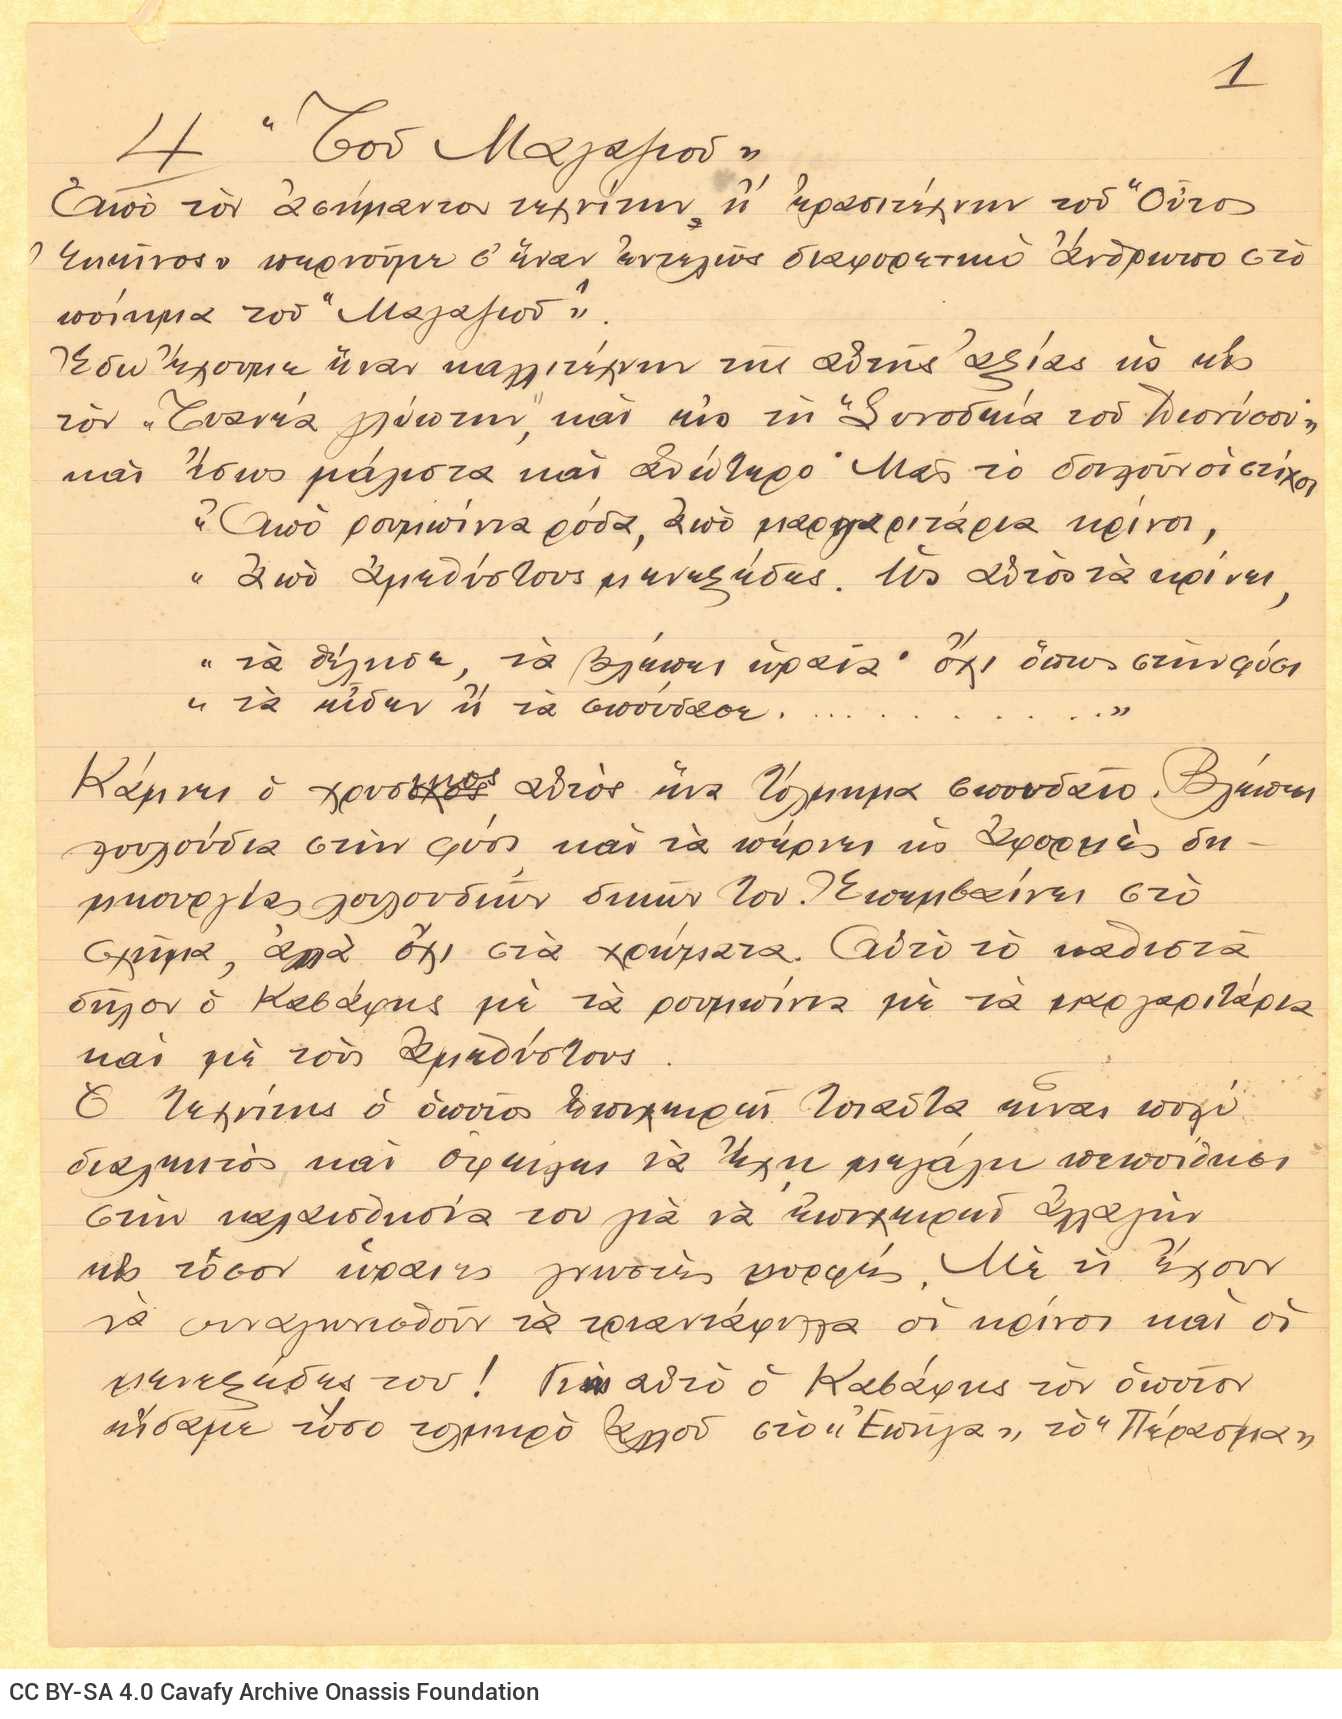 1
4 “Τοῦ Μαγαζιοῦ»
Ἀπὸ τὸν ἀσήμαντον τεχνίτην, ἢ ἐρασιτέχνην τοῦ “Οὗτος
Ἐκεῖνος» περνοῦμε σ’ ἕναν ἐντελῶς διαφορετικὸ ἄνθρωπο στὸ
ποίημα τοῦ “Μαγαζιοῦ».
Ἐδῶ ἔχουμε ἕναν καλλιτέχνην τῆς αὐτῆς ἀξίας ὡς εἰς
τὸν “Τυανέα γλύπτην” καὶ εἰς τὴ “Συνοδεία τοῦ Διονύσου»
καὶ ἴσως μάλιστα καὶ ἀνώτερο· Μᾶς τὸ δηλοῦν οἱ στίχοι
“Ἀπὸ ρουμπίνια ρόδα, ἀπὸ μαργαριτάρια κρίνοι,
“ ἀπὸ ἀμεθύστους μενεξέδες. Ὡς αὐτὸς τὰ κρίνει,
“ τὰ θέλησε, τὰ βλέπει ὡραῖα· ὄχι ὅπως στὴν φύσι
“ τὰ εἶδεν ἢ τὰ σπούδασε. . . . . . . . . . . . »
Κάμνει ὁ χρυσικὸς αὐτὸς ἕνα τόλμημα σπουδαῖο. Βλέπει
λουλούδια στὴν φύσι καὶ τὰ παίρνει ὡς ἀφορμὲς δη-
μιουργίας λουλουδιῶν δικῶν του. Ἐπεμβαίνει στὸ
σχῆμα, ἀλλὰ ὄχι στὰ χρώματα. Αὐτὸ τὸ καθιστᾶ
δῆλον ὁ Καβάφης μὲ τὰ ρουμπίνια μὲ τὰ μαργαριτάρια
καὶ μὲ τοὺς ἀμεθύστους.
Ὁ τεχνίτης ὁ ὁποῖος ἐπιχειρεῖ τοιαῦτα εἶναι πολὺ
διαλεκτὸς καὶ ὀφείλει νὰ ἔχῃ μεγάλη πεποίθησι
στὴν καλαισθησία του γιὰ νὰ ἐπιχειρεῖ ἀλλαγὴν
εἰς τόσον ὡραίες γνωστὲς μορφές. Μὲ τὶ ἔχουν
νὰ συναγωνισθοῦν τὰ τριαντάφυλλα οἱ κρίνοι καὶ οἱ
μενεξέδες του! Γιὰ αὐτὸ ὁ Καβάφης τὸν ὁποῖον
εἴδαμε τόσο τολμηρὸ ἀλλοῦ στὸ “Ἐπῆγα», τὸ “Πέρασμα»
CC BY-SA 4.0 Cavafy Archive Onassis Foundation